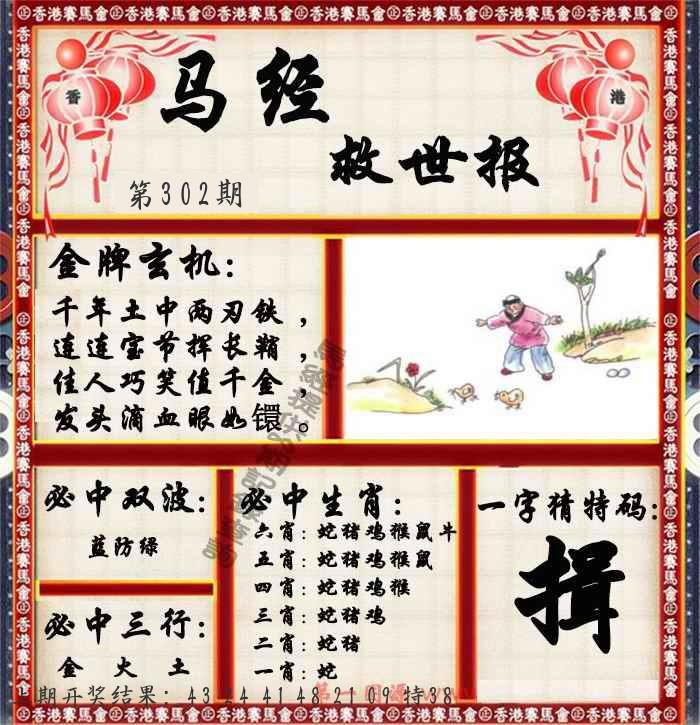 香港賽馬會
香
港
马经
救世报
第302期
金牌玄机：
千年土中两刃铁，
连连宝节挥长鞘，
佳人巧笑值千金，
发头滴血眼如镮。
必中双波：
蓝防绿
必中三行：
金 火 土
必中生肖：
六肖：蛇猪鸡猴鼠牛
五肖：蛇猪鸡猴鼠
四肖：蛇猪鸡猴
三肖：蛇猪鸡
二肖：蛇猪
一肖：蛇
一字猜特码：
揖
期开奖结果：43 24 41 48 21 09 特38